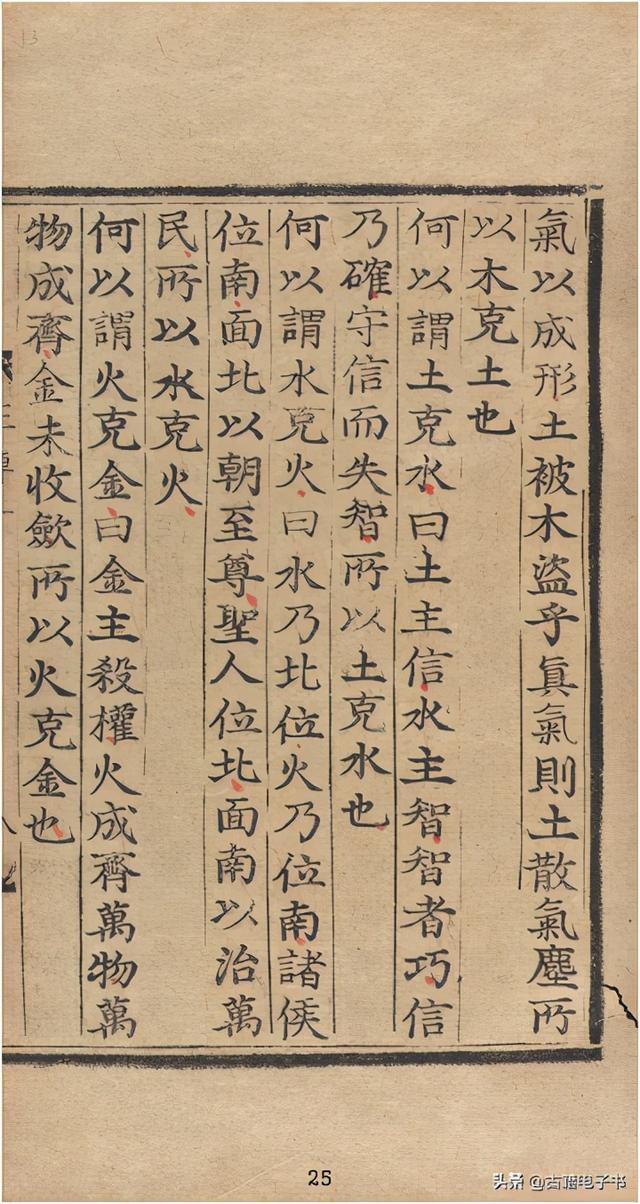 氣以成形土被木盜乎眞氣則土散氣塵所
以木克土也
何以謂土克水曰土主信水主智智者巧信
乃確守信而失智所以土克水也
何以謂水克火曰水乃北位火乃位南諸侯
位南面北以朝至尊聖人位北面南以治萬
民所以水克火
何以謂火克金曰金主殺權火成齊萬物萬
物成齊金未收斂所以火克金也
25
头条 @古籍电子书